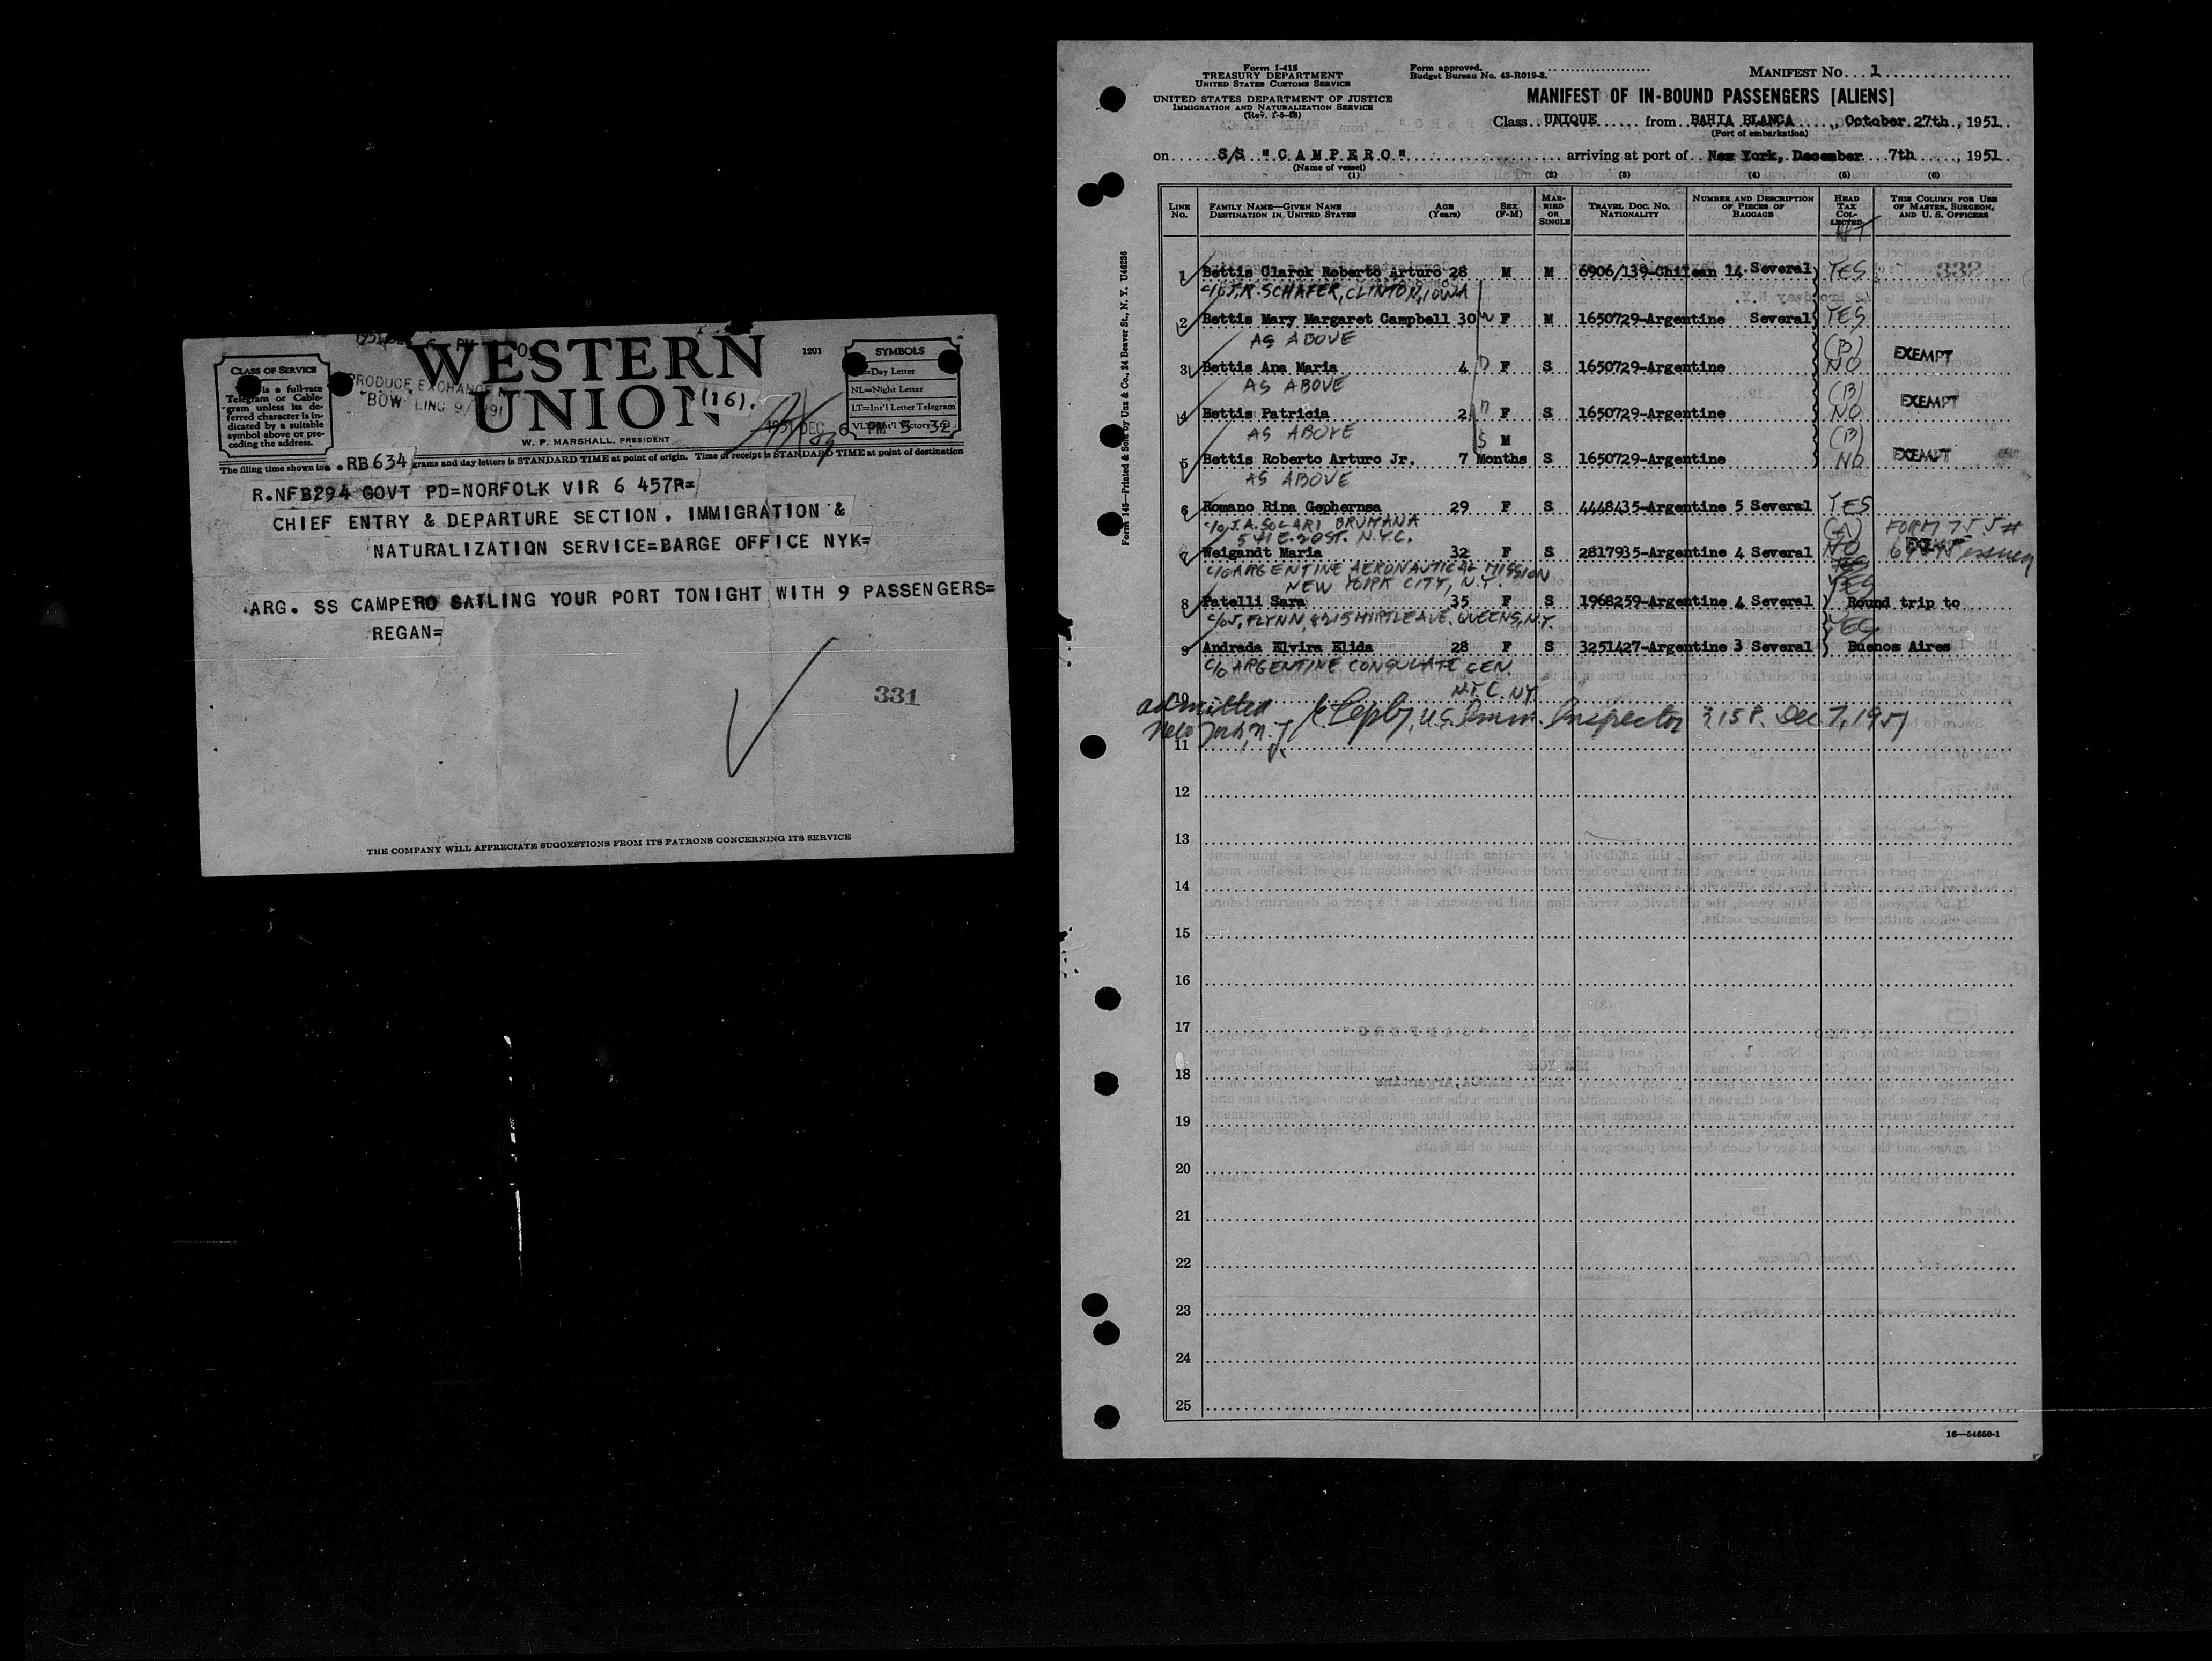 WESTERN
UNION
1201
(16).
CLASS OF SERVICE
is a full-rate
Telegram or Cable-
gram unless its de-
ferred character is in-
dicated by a suitable
symbol above or pre-
ceding the address.
PRODUCE EXCHANGE
"BOW LING 9/
W. P. MARSHALL, PRESIDENT
SYMBOLS
=Day Letter
NL=Night Letter
LT=Int'l Letter Telegram
1951 DEC 6 PM 5 32
The filing time shown in
.RB634
grams and day letters is STANDARD TIME at point of origin. Time of receipt is STANDARD TIME at point of destination
R.NFB294 GOVT PD=NORFOLK VIR 6 457P=
CHIEF ENTRY & DEPARTURE SECTION, IMMIGRATION &
NATURALIZATION SERVICE=BARGE OFFICE NYK=
ARG. SS CAMPERO SAILING YOUR PORT TONIGHT WITH 9 PASSENGERS=
REGAN=
331
THE COMPANY WILL APPRECIATE SUGGESTIONS FROM ITS PATRONS CONCERNING ITS SERVICE
Form I-415
TREASURY DEPARTMENT
UNITED STATES CUSTOMS SERVICE
UNITED STATES DEPARTMENT OF JUSTICE
IMMIGRATION AND NATURALIZATION SERVICE
Form approved.
Budget Bureau No. 43-R019-3.
MANIFEST NO. 1
MANIFEST OF IN-BOUND PASSENGERS [ALIENS]
Class UNIQUE from BAHIA BLANCA, October 27th, 1951
(Port of embarkation)
on S/S "CAMPERO" arriving at port of New York, December 7th, 1951
(Name of vessel)
(1) (2) (3) (4) (5) (6)
LINE No. FAMILY NAME—GIVEN NAME DESTINATION IN UNITED STATES AGE (Years) SEX (F-M) MARRIED OR SINGLE TRAVEL DOC. NO. NATIONALITY NUMBER AND DESCRIPTION OF PIECES OF BAGGAGE HEAD TAX COLLECTED THIS COLUMN FOR USE OF MASTER, SURGEON, AND U. S. OFFICERS
332
1 Bettis Clarck Roberto Arturo 28 M M 6906/139-Chilean 14 Several YES
c/o J.R. SCHAFER, CLINTON, IOWA
2 Bettis Mary Margaret Campbell 30 F M 1650729-Argentine Several YES
AS ABOVE
3 Bettis Ana Maria 4 F S 1650729-Argentine (B) NO EXEMPT
AS ABOVE
4 Bettis Patricia 2 F S 1650729-Argentine (B) NO EXEMPT
AS ABOVE
5 Bettis Roberto Arturo Jr. 7 Months M S 1650729-Argentine (B) NO EXEMPT
AS ABOVE
6 Romano Rina Gephernsa 29 F S 4448435-Argentine 5 Several YES
c/o J.A. SOLARI BRUMANA
541 E. 20 ST. N.Y.C.
7 Weigandt Maria 32 F S 2817935-Argentine 4 Several (A) NO EXEMPT
c/o ARGENTINE AERONAUTICAL MISSION
NEW YORK CITY, N.Y.
8 Fatelli Sara 35 F S 1968259-Argentine 4 Several YES Round trip to
c/o J. FLYNN, 8215 MYRTLE AVE. QUEENS, N.Y.
9 Andrada Elvira Elida 28 F S 3251427-Argentine 3 Several YES Buenos Aires
c/o ARGENTINE CONSULATE GEN
N.Y.C. N.Y.
10
admitted
New York, N.Y. U.S. Imm. Inspector 3:15 P. Dec 7, 1951
11
12
13
14
15
16
17
18
19
20
21
22
23
24
25
16—54650-1
Form 145—Printed & Sold by Unz & Co., 24 Beaver St., N. Y. U46236